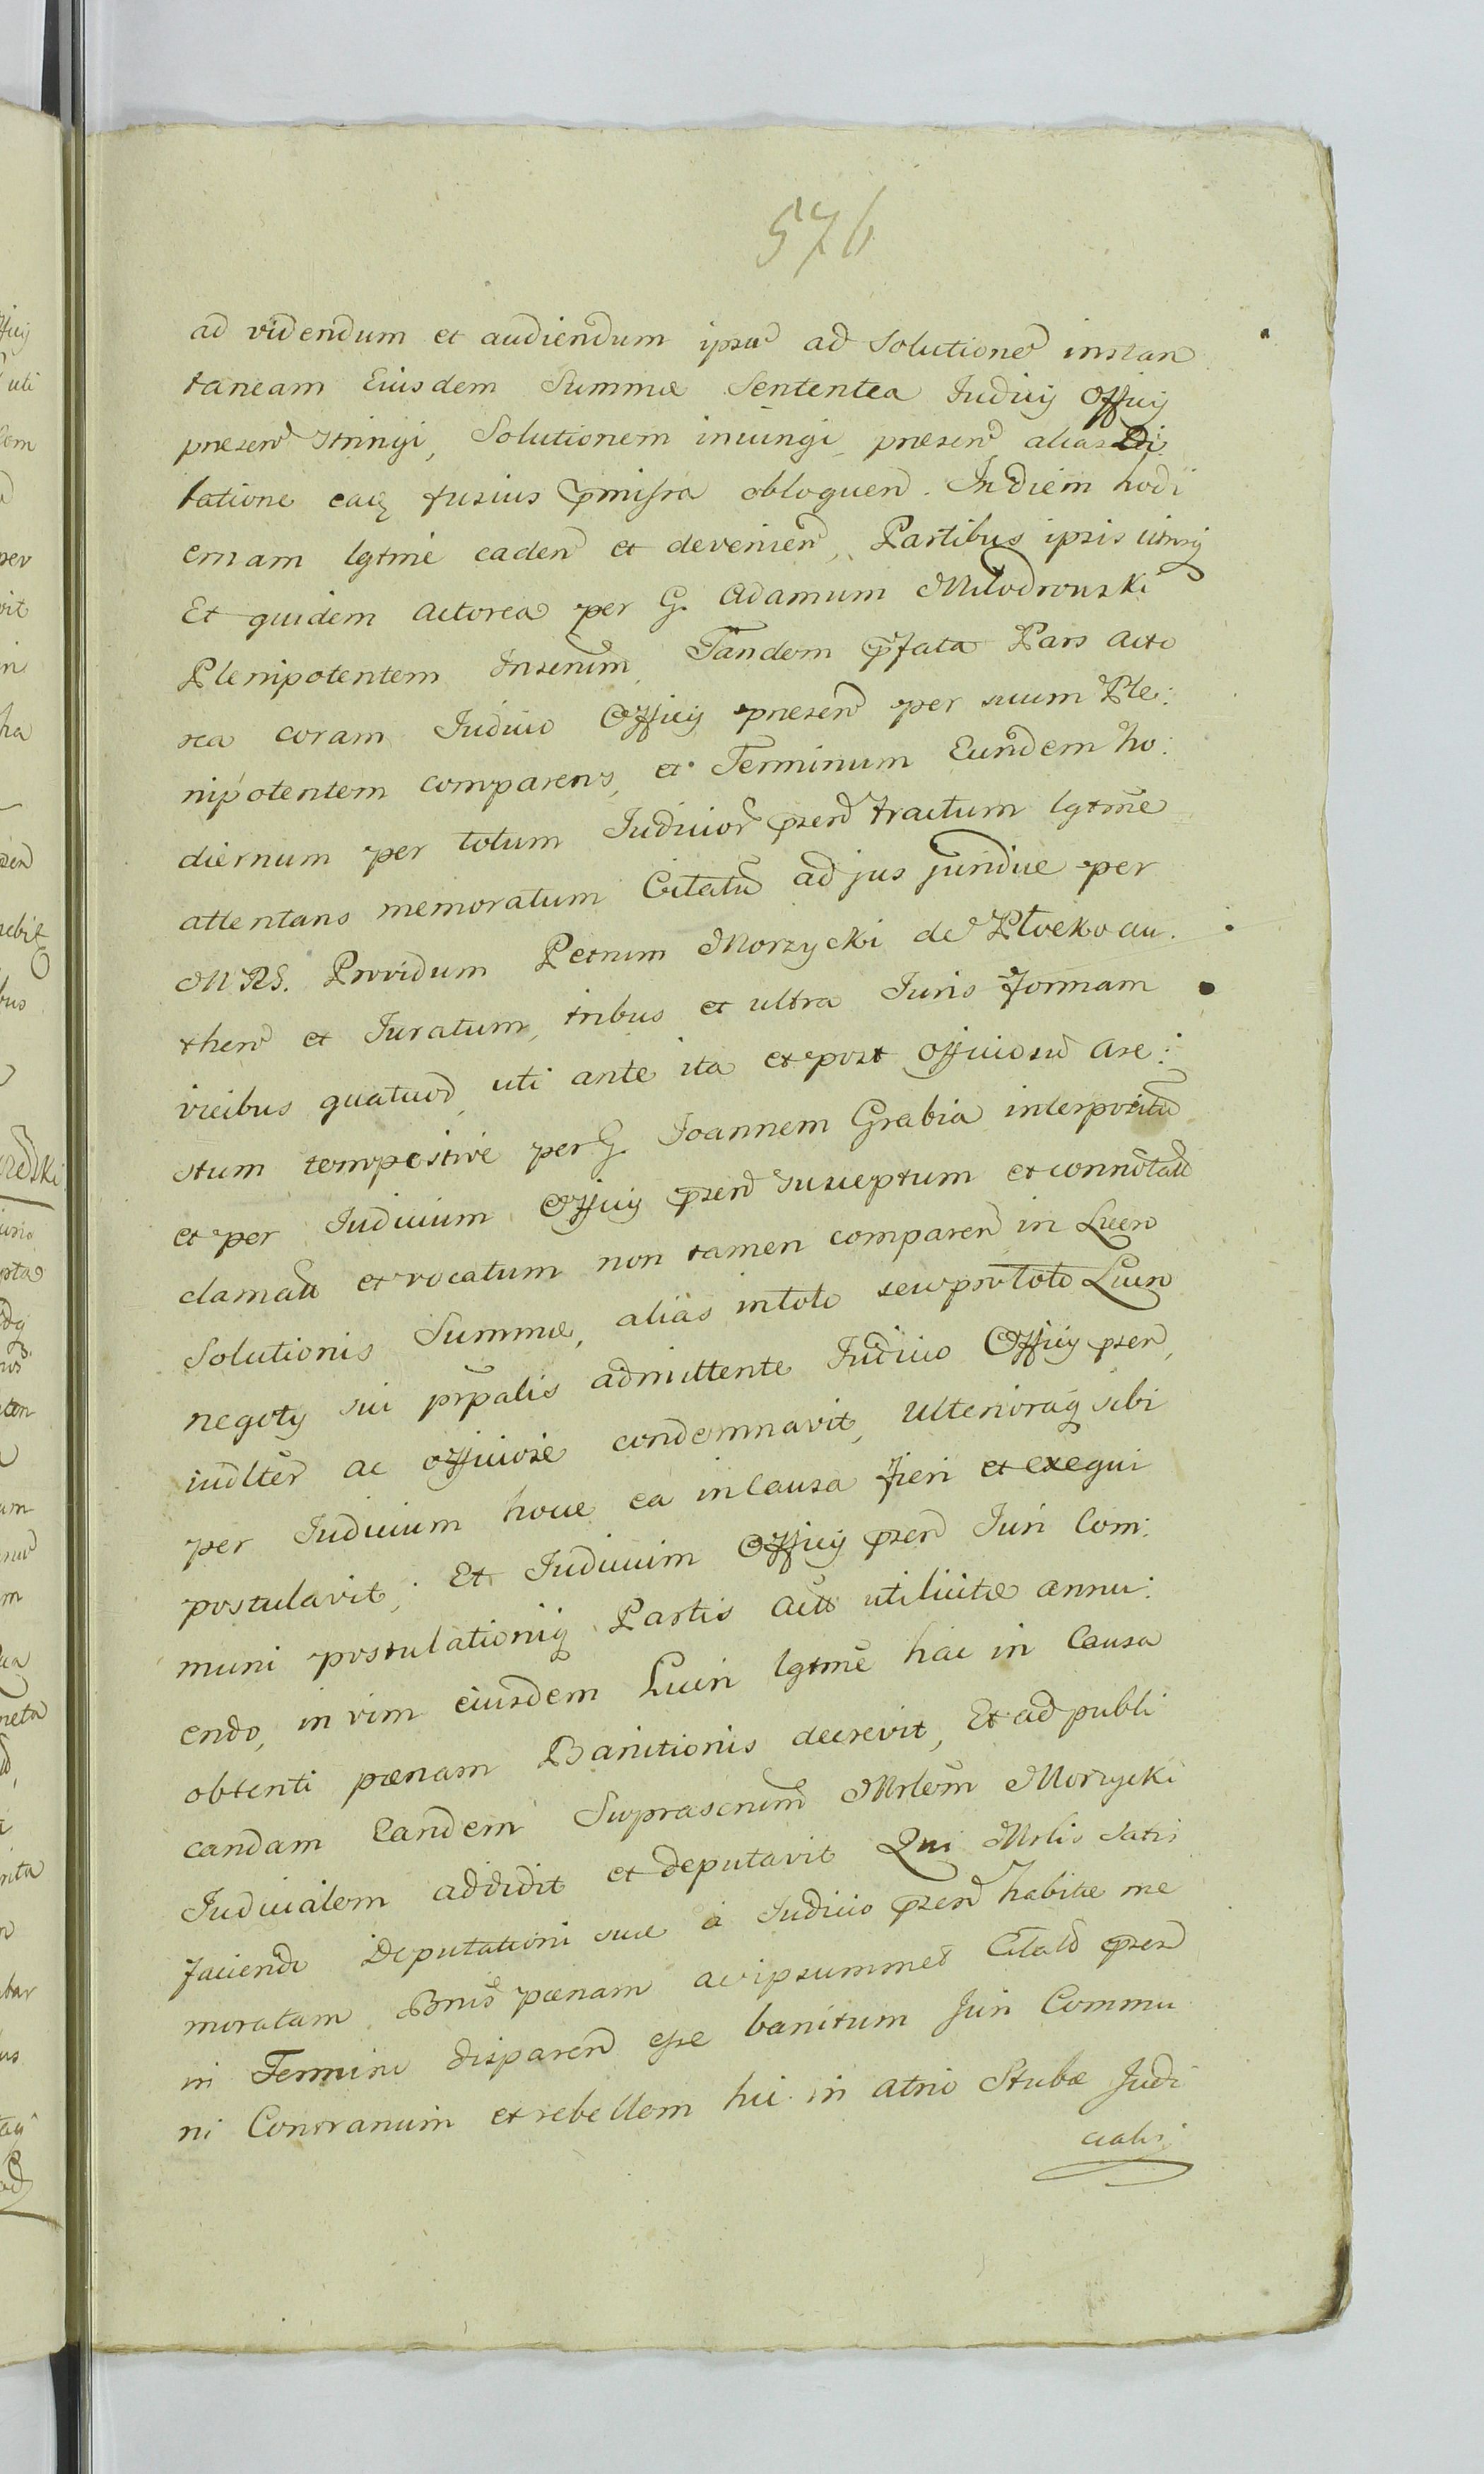 576
ad videndum et audiendum ipsu ad Solutione instan
taneam Eiusdem Summæ Sententea Judicij Officij
præsen stringi, Solutionem iniungi præsen alias Ci
tatione eaq fusius pmissa obloquen. In diem hodi
ernam lgtme caden et devenien, Partibus ipsis utrinq
Et quidem Actorea per G. Adamum Milodrowski
Plenipotentem Inserum, Tandem pfata Pars Acto
rea coram Judicio Officij præsen per suum Ple:
nipotentem comparens, et Terminum Eundem ho:
diernum per totum Judicior psen tractum lgtme
attentans memoratum Citatu ad jus juridice per
MRS. Providum Petrum Morzycki de Plocko au.
then et Juratum, tribus et ultra Juris formam
vicibus quatuor, uti ante ita et post officiosu Are:
stum tempestive per G. Joannem Grabia interpositu
et per Judicium Officij psen susceptum et connotatu
clamatu et vocatum non tamen comparen in Lucro
Solutionis Summæ, alias in toto seu pro toto Lucro
negoty sui prpalis admittente Judicio Officij psen,
iudlter ac officiose condemnavit, Ulterioraq sibi
per Judicium hocce ea in Causa fieri et exequi
postulavit; Et Judicium Officij psen Juri Com:
muni postulationiq Partis Actt utilicitæ annu:
endo, in vim eiusdem Lucri lgtme hac in Causa
obtenti pœnam Banitionis decrevit, Et ad publi
candam Eandem Suprascrium Mrlem Morzycki
Judicialem addidit et deputavit Qui Mrlis Satis
faciendo Deputationi suæ a Judicio psen habitæ me
moratam Bnis pœnam ac ipsummet Citatu psen
in Termino disparen esse banitum Juri Commu
ni Contrarium et rebellem hic in atrio Stubæ Judi
cialis